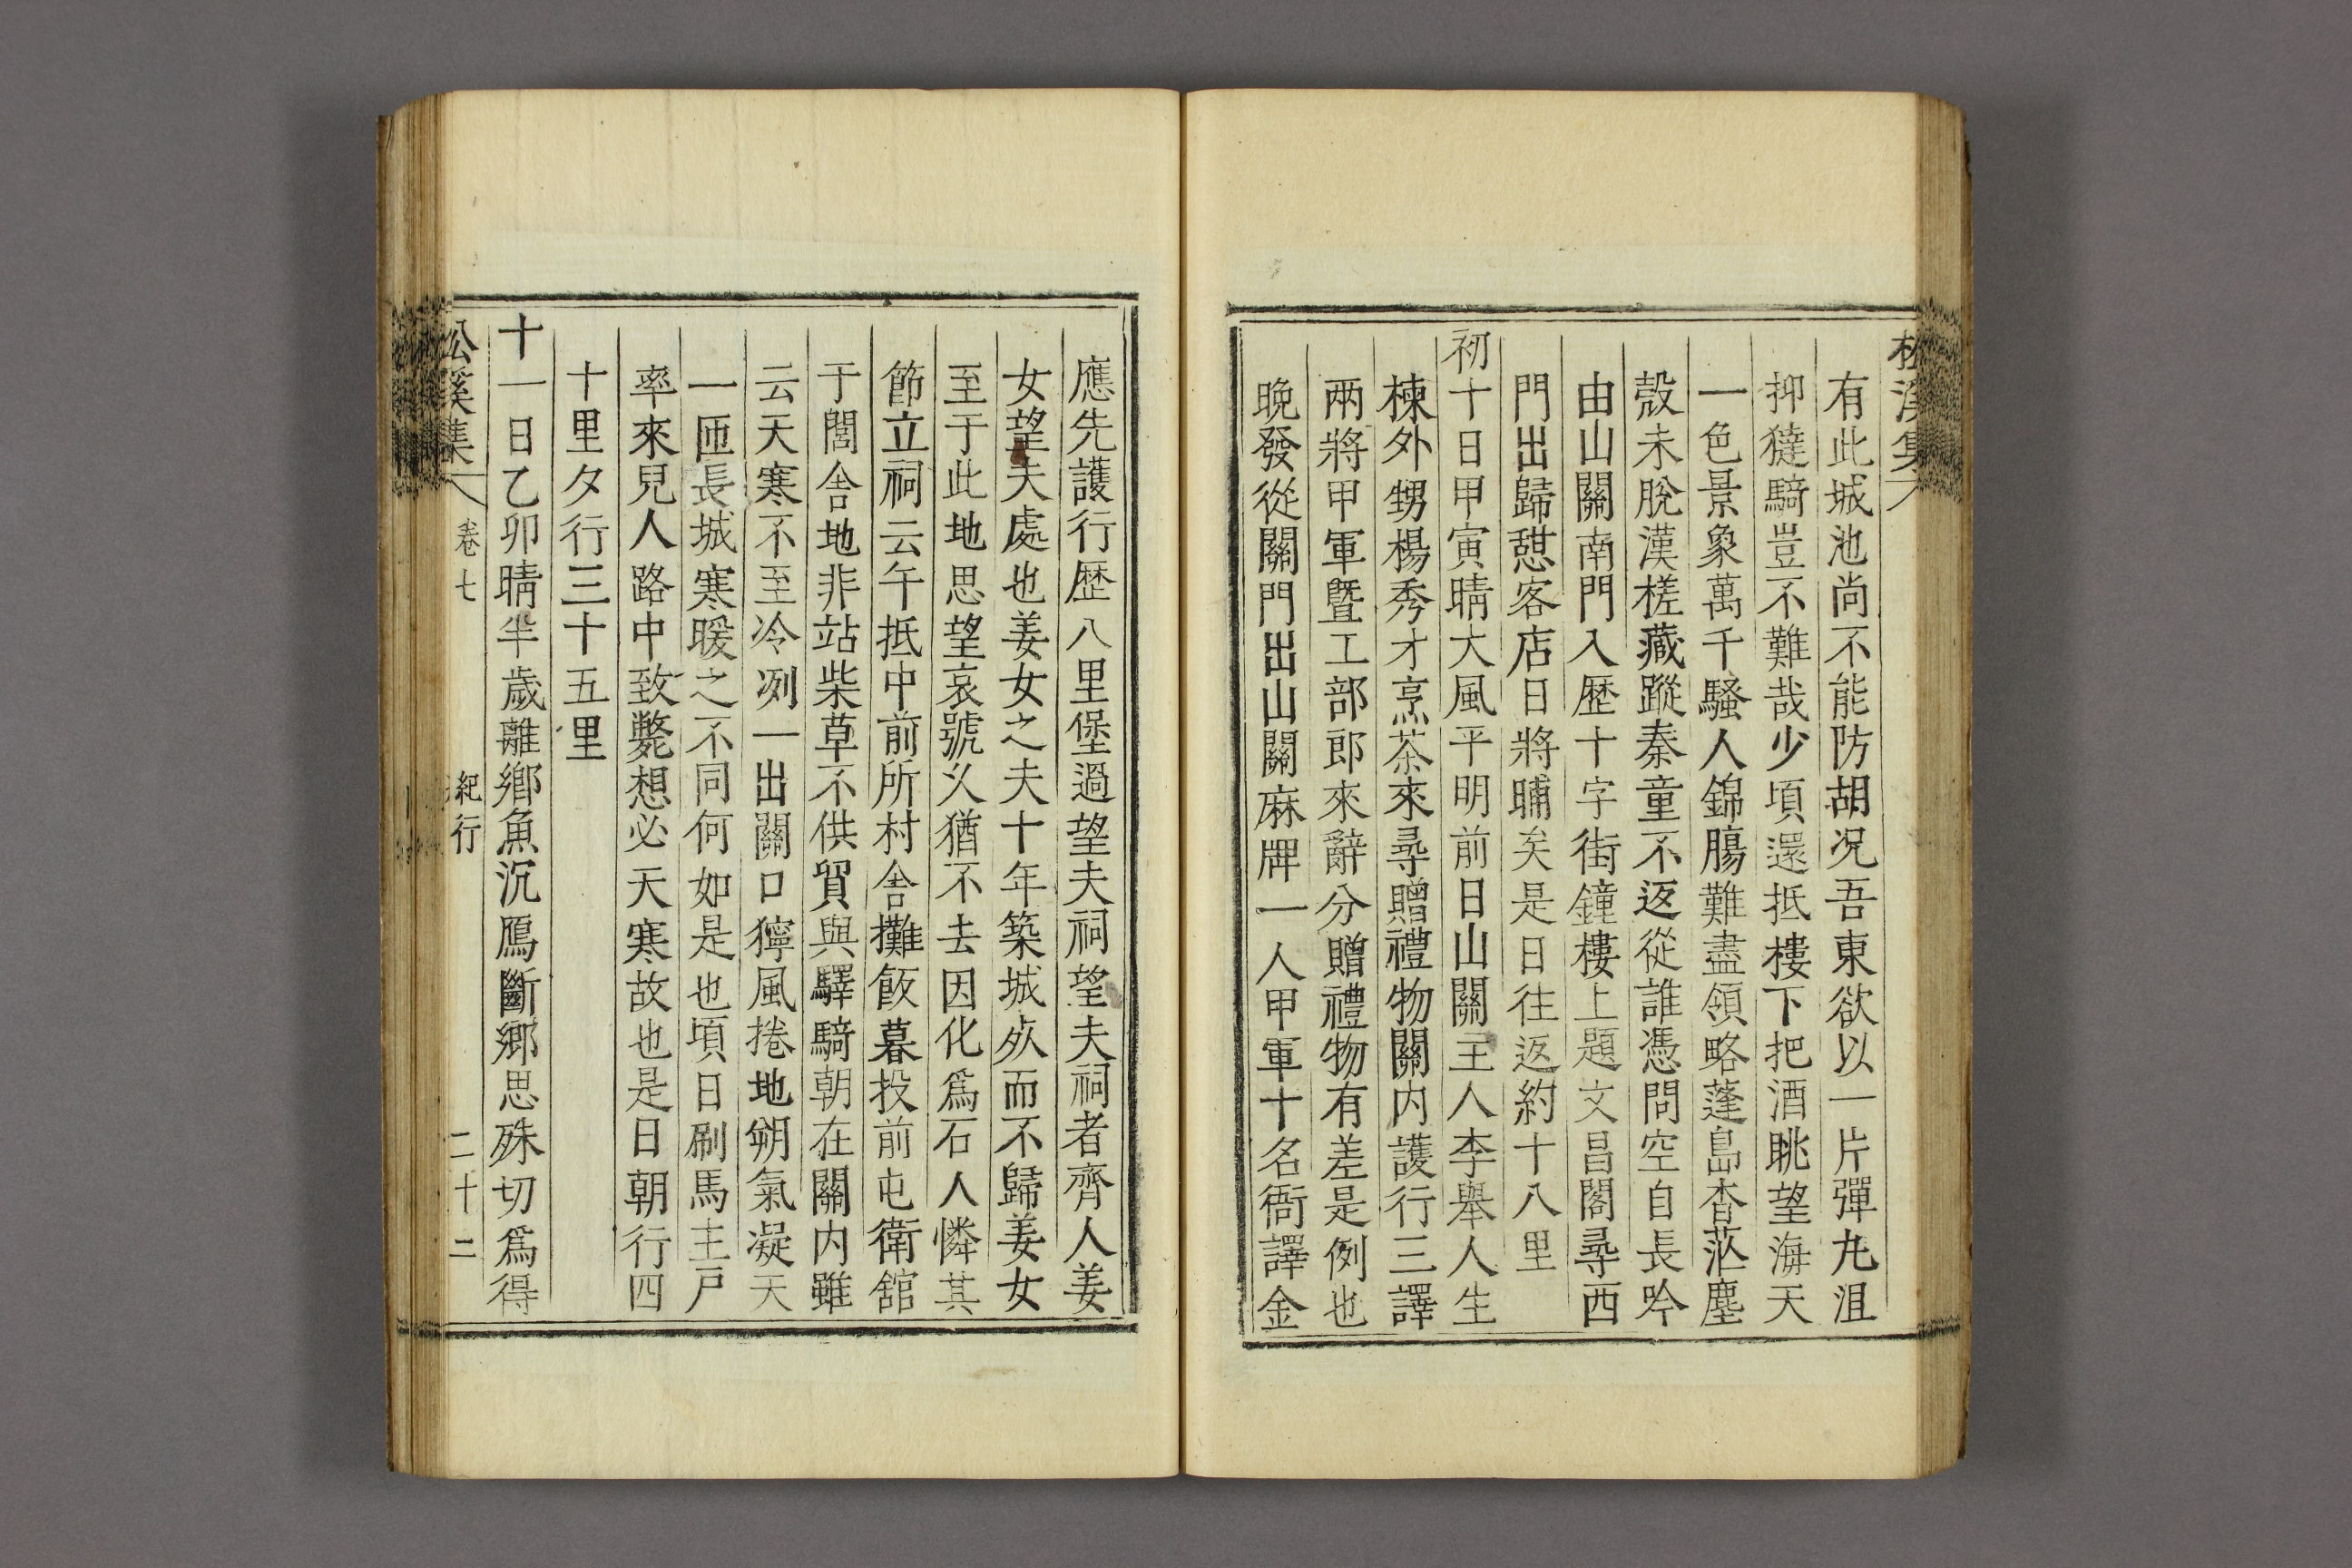 松溪集
有此城池尚不能防胡况吾東欲以一片彈丸沮
抑㺚騎豈不難哉少頃還抵樓下把酒眺望海天
一色景象萬千騷人錦膓難盡領略蓬島杳茫塵
殼未脫漢槎藏蹤秦童不返從誰憑問空自長吟
由山關南門入歷十字街鐘樓上題文昌閣尋西
門出歸憇客店日將晡矣是日往返約十八里
初十日甲寅晴大風平明前日山關主人李舉人生
棟外甥楊秀才烹茶來尋贈禮物關內護行三譯
兩將甲軍曁工部郎來辭分贈禮物有差是例也
晚發從關門出山關麻牌一人甲軍十名衙譯金
應先護行歷八里堡過望夫祠望夫祠者齊人姜
女望夫處也姜女之夫十年築城死而不歸姜女
至于此地思望哀號久猶不去因化爲石人憐其
節立祠云午抵中前所村舍攤飯暮投前屯衛舘
于閭舍地非站柴草不供貿與驛騎朝在關内雖
云天寒不至冷冽一出關口獰風捲地朔氣凝天
一匝長城寒暖之不同何如是也頃日刷馬主戶
率來兒人路中致斃想必天寒故也是日朝行四
十里夕行三十五里
十一日乙卯晴半歲離鄉魚沉鴈斷鄉思殊切爲得
松溪集 卷七 紀行 二十二